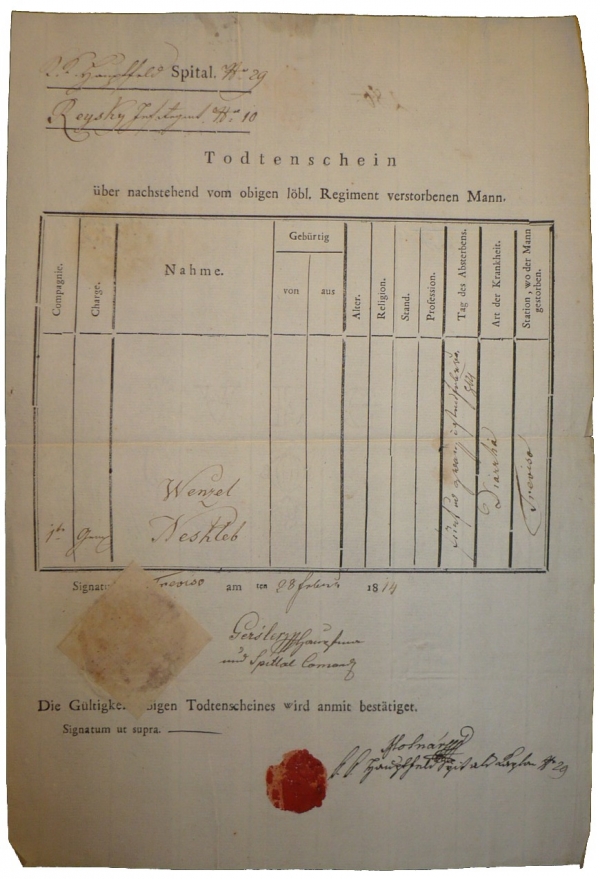 Hauptfeld Spital. Nro 29
Reysky Inf. Regmt. Nro 10
Todtenschein
über nachstehend vom obigen löbl. Regiment verstorbenen Mann.
Compagnie.
Charge.
Nahme.
Gebürtig
von
aus
Alter.
Religion.
Stand.
Profession.
Tag des Absterbens.
Art der Krankheit.
Station, wo der Mann
gestorben.
Wenzel
1te
Diarrhä
Treviso
Signatum Treviso am ten 28 1814
und Spittal
Die Gültigke obigen Todtenscheines wird anmit bestätiget.
Signatum ut supra.
Molnár
Hauptfeld Spitals Caplan Nro 29